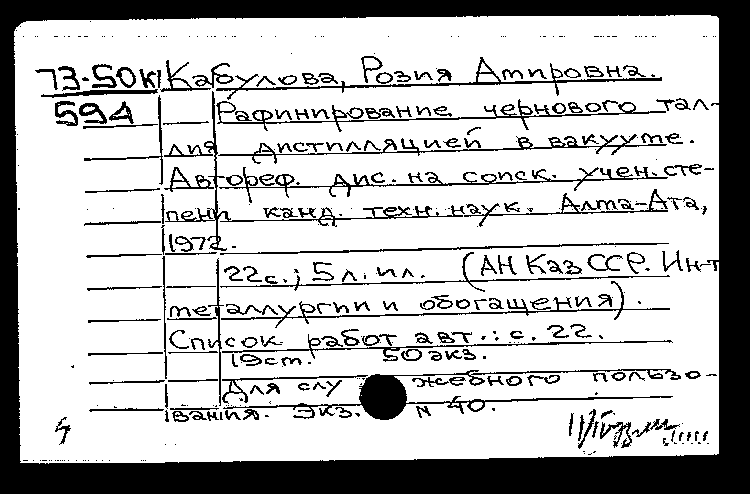 73-50к Кабулова, Розия Амировна.
594 Рафинирование чернового тал-
лия дистилляцией в вакууме.
Автореф. дис. на соиск. учен. сте-
пени канд. техн. наук. Алма-Ата,
1972.
22с.; 5 л. ил. (АН Каз ССР. Ин-т
металлургии и обогащения).
Список работ авт.: с. 22.
19 ст. 50 экз.
Для служебного пользо-
вания. Экз. N 40.